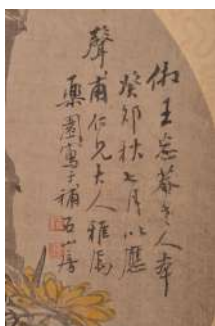 仿王忘菴老人本
癸卯秋七月以應
聲甫仁兄大人雅屬
藥園寫于補石山房